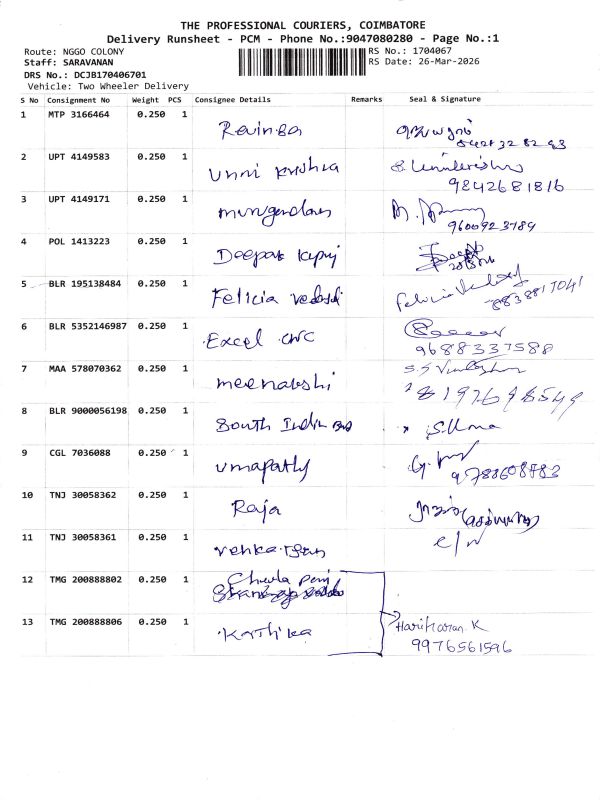 THE PROFESSIONAL COURIERS, COIMBATORE
Delivery Runsheet - PCM - Phone No.:9047080280 - Page No.:1
Route: NGGO COLONY
RS No.: 1704067
Staff: SARAVANAN
RS Date: 26-Mar-2026
DRS No.: DCJB170406701
Vehicle: Two Wheeler Delivery
S No Consignment No Weight PCS Consignee Details Remarks Seal & Signature
1 MTP 3166464 0.250 1
2 UPT 4149583 0.250 1 Unni krishna
9842681816
3 UPT 4149171 0.250 1
9600923789
4 POL 1413223 0.250 1 Deepak
5 BLR 195138484 0.250 1 Felicia
8838817041
6 BLR 5352146987 0.250 1 Excel CNC
9688337588
7 MAA 578070362 0.250 1 meenakshi
8197698549
8 BLR 9000056198 0.250 1 South Indin S.Uma
9 CGL 7036088 0.250 1 umapathy
10 TNJ 30058362 0.250 1 Raja
11 TNJ 30058361 0.250 1
12 TMG 200888802 0.250 1
13 TMG 200888806 0.250 1 Hariharan K
9976561596